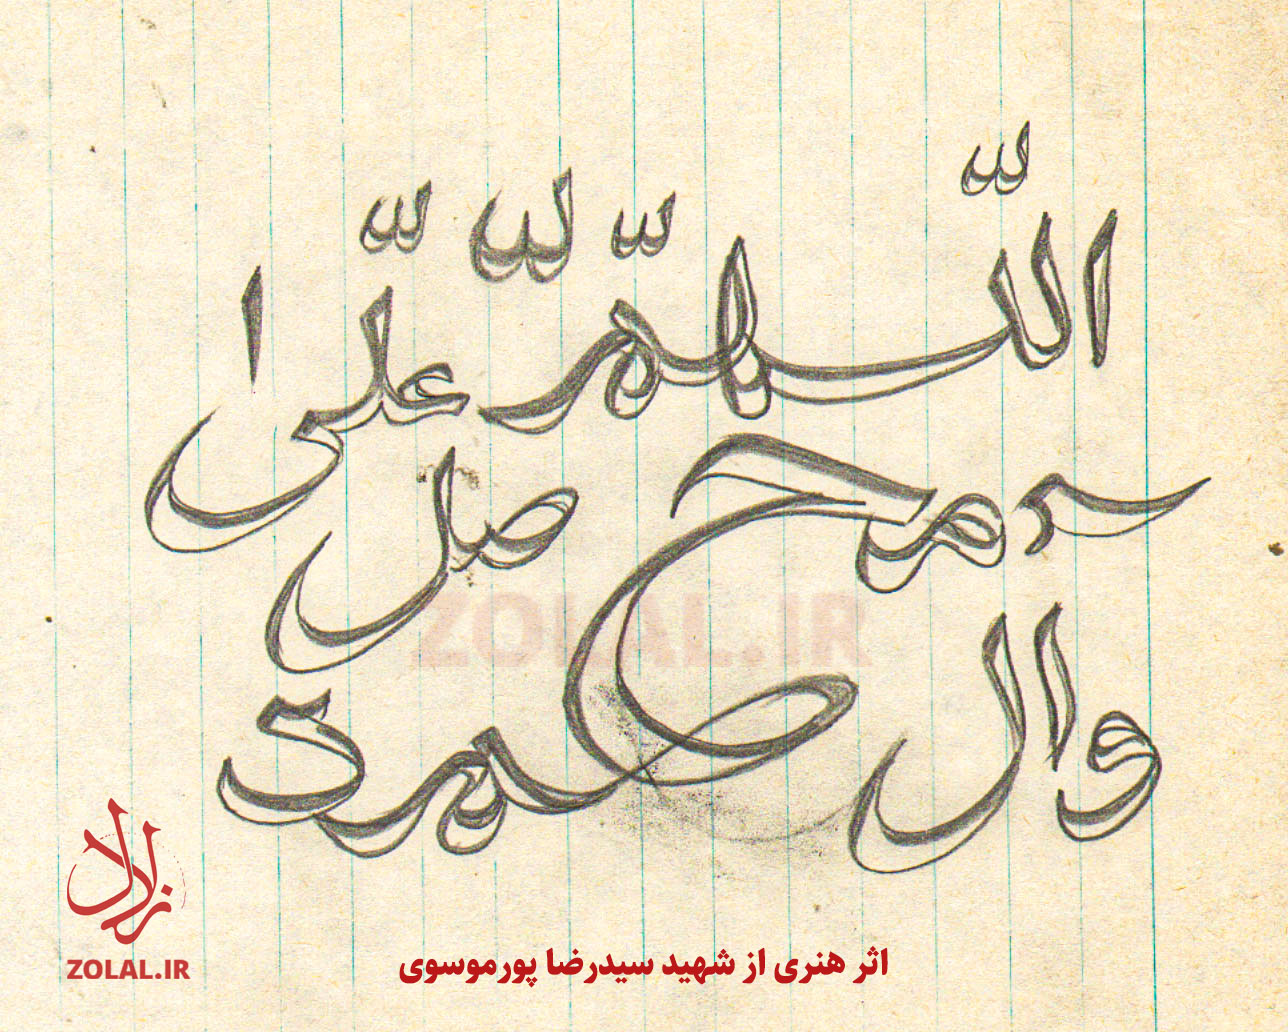 اللّهمّ صلّ علی
وآل محمد
ZOLAL.IR
زلال
ZOLAL.IR
اثر هنری از شهید سیدرضا پورموسوی